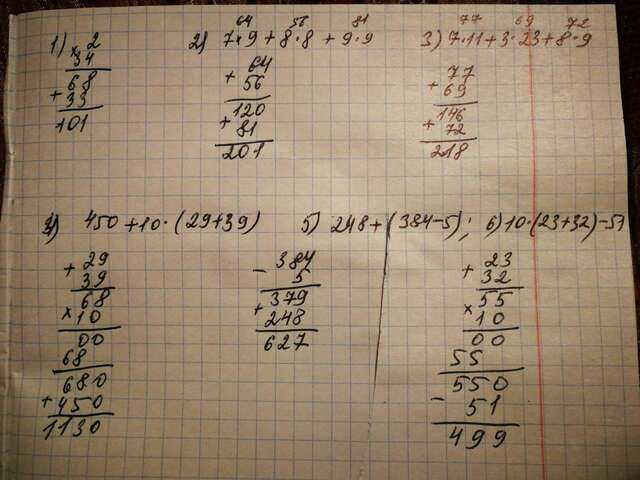 1) × 2
34
68
+ 33
101
64 56 81
2) 7·9 + 8·8 + 9·9
+ 64
56
120
+ 81
201
77 69 72
3) 7·11 + 3·23 + 8·9
+ 77
69
146
+ 72
218
4) 450 + 10·(29+39)
+ 29
39
68
× 10
00
68
680
+ 450
1130
5) 248 + (384-5);
- 384
5
379
+ 248
627
6) 10·(23+32)-51
+ 23
32
55
× 10
00
55
550
- 51
499